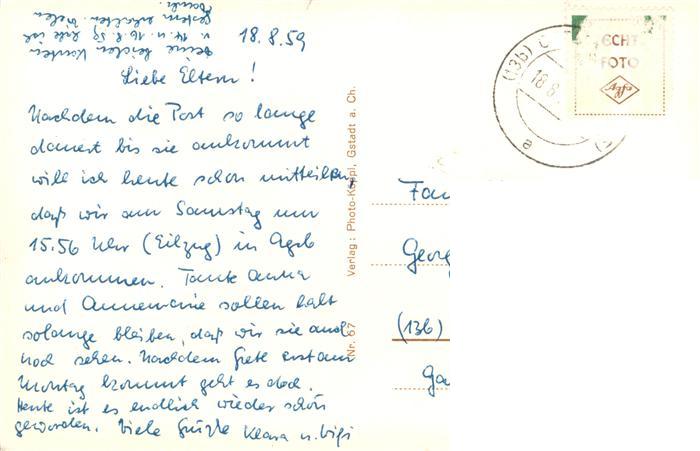 18.8.59
Deine beiden Karten
v. 14. u. 16. 8. 59 habe ich
gestern erhalten. Vielen
Dank!
Liebe Eltern!
Nachdem die Post so lange
dauert bis sie ankommt
will ich heute schon mitteilen,
daß wir am Samstag um
15.56 Uhr (Eilzug) in Agsb
ankommen. Tante Anna
und Annemarie sollen halt
solange bleiben, daß wir sie auch
noch sehen. Nachdem Grete erst am
Montag kommt geht es doch.
Heute ist es endlich wieder schön
geworden. Viele Grüße Klara u.
Verlag: Photo-Koppl, Gstadt a. Ch.
Nr. 67
ECHT
FOTO
(13b)
18.8.
a
Fam
Georg
(13b)
Ga